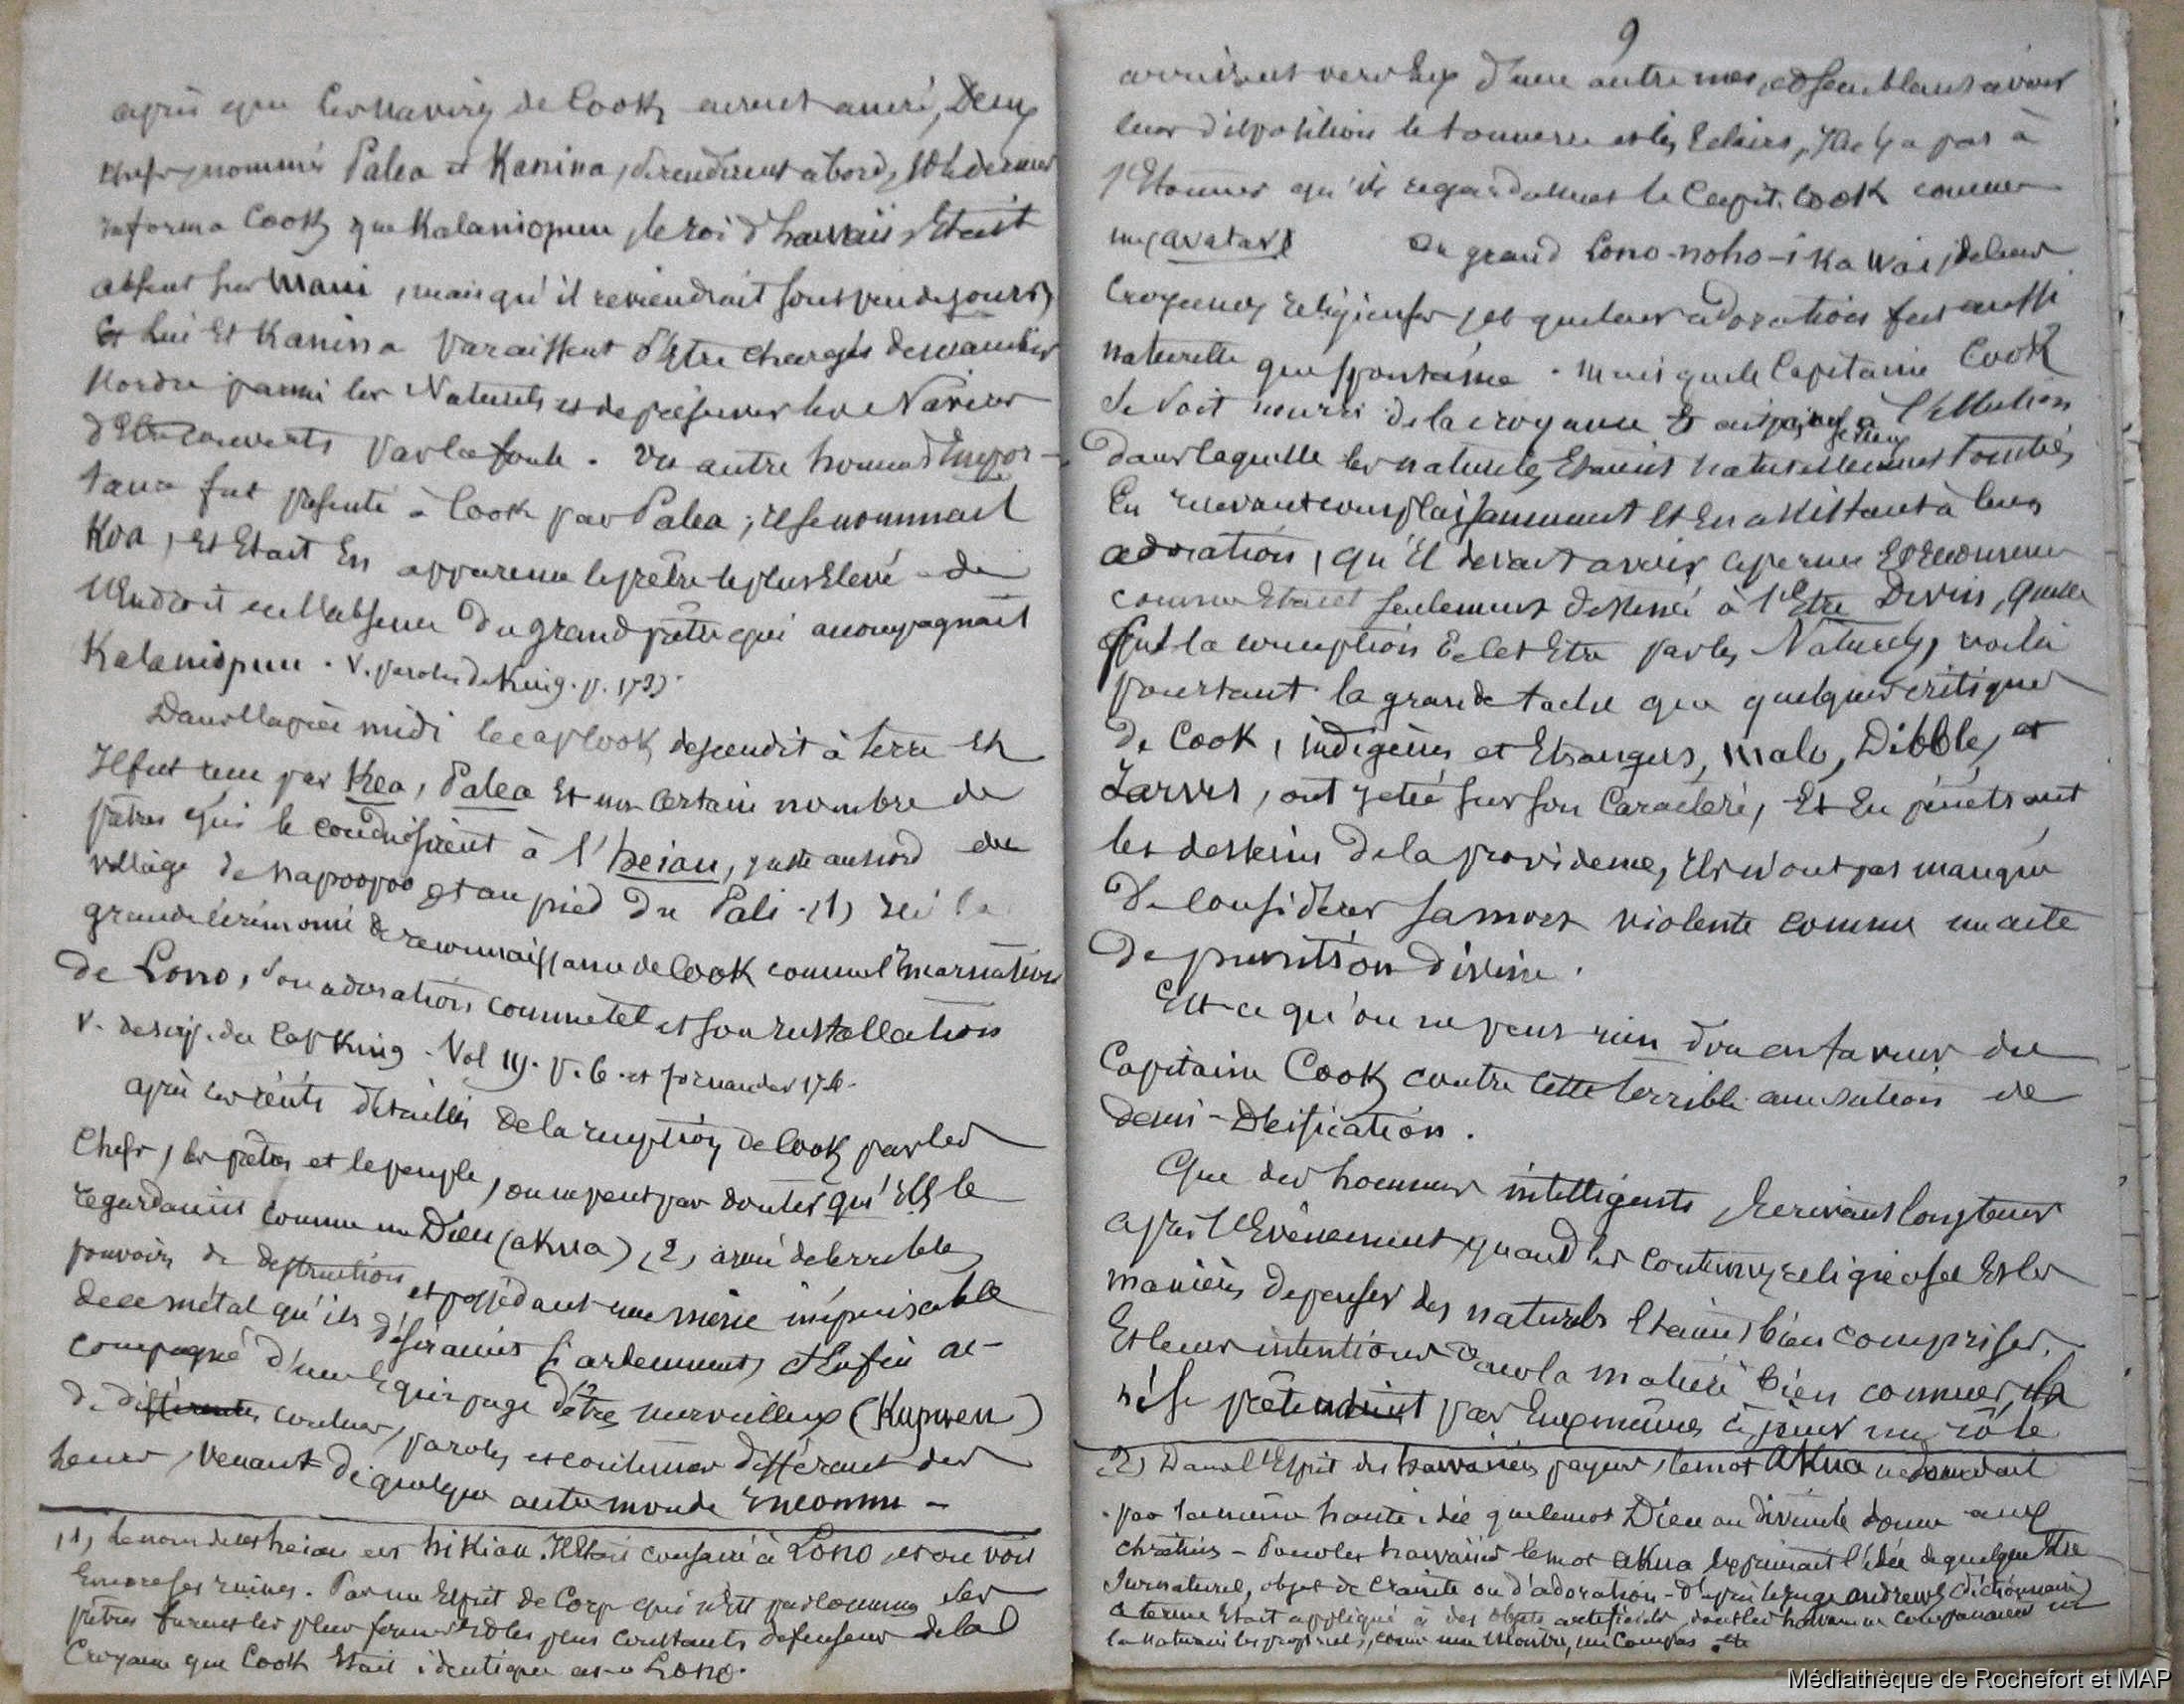 après que les navires de Cook eurent ancré, Deux
chefs, nommés Palea et Kanina, se rendirent à bord, et le dernier
informa Cook que Kalaniopuu, le roi d'hawaii, Etait
absent sur Maui, mais qu'il reviendrait sous peu de jours,
Et Lui Et Kanina paraissent d'Etre chargés de
l'ordre parmi les Naturels et de préserver les Navires
d'Etre couverts par la foule. Un autre homme d'Impor-
tance fut présenté à Cook par Palea; il se nommait
Koa, et Etait En apparence le prêtre le plus Elevé de
l'Endroit en l'absence Du grand prêtre qui accompagnait
Kalaniopuu. V. paroles de King. p. 173.
Dans l'après midi le cap Cook descendit à terre Et
Il fut reçu par Koa, Palea Et un certain nombre de
prêtres qui le conduisirent à l'heiau, juste au nord du
village de Napoopoo Et au pied Du Pali. (1) ici la
grande cérémonie de reconnaissance de Cook comme l'Incarnation
de Lono, son adoration comme tel et son Installation
V. descrip. du Cap King. Vol III. p. 6. et fornander 176.
après les récits détaillés de la réception de Cook par les
Chefs, les prêtres et le peuple, on ne peut pas douter qu'Ils le
regardaient comme un Dieu (akua) (2) armé de terribles
pouvoirs de destruction et possédant une mine inépuisable
de ce métal qu'ils désiraient si ardemment, et Enfin ac-
compagné d'un Equipage d'êtres merveilleux (Kupueu)
de différentes couleur, paroles et coutumes différant des
leurs, venant de quelque autre monde Inconnu -
(1) Le nom de cet heiau est hikiau. Il Etait consacré à Lono, et on voit
Encore ses ruines. Par un Esprit de Corp qui n'Est pas les
prêtres furent les plus fermes et les plus constants défenseurs de la
Croyance que Cook Etait identique avec Lono.
9
arrivant vers Eux d'une autre mer, et semblant avoir
leur disposition le tonnerre et les Eclairs, Il n'y a pas à
s'Etonner qu'ils regardaient le Capit. Cook comme
un avatar Du grand Lono-noho-i-ka wai, de leur
Croyances religieuses, et que leur adoration fut aussi
naturelle que spontanée. Mais que le Capitaine Cook
se soit nourri de la croyance Et à l'Illusion
Dans laquelle les naturels Etaient naturellement tombés,
En recevant complaisamment Et En assistant à leurs
adoration, qu'il devait avoir aperçu Et reconnu
comme Etant seulement destiné à l'Etre Divin, quelle
que fut la conception de cet Etre par les Naturels, voilà
pourtant la grande tache que quelques critiques
de Cook, indigènes et Etrangers, Malo, Dibble, et
Jarves, ont jeté sur son Caractère, Et En pénétrant
les desseins de la providence, ils n'ont pas manqué
De Considérer sa mort violente comme un acte
De punition divine.
Est-ce qu'on ne peut rien dire en faveur du
Capitaine Cook contre cette terrible accusation de
demi-Déification.
Que des hommes intelligents, Ecrivant longtemps
après l'Evènement, quand les coutumes religieuses Et les
manières de penser des naturels Etaient bien comprises,
Et leurs intentions dans la matière bien connues,
par Eux mêmes à jouer un rôle
(2) Dans l'Esprit des hawaiiens payens, le mot Akua ne
pas la même haute idée que le mot Dieu ou divinité donne aux
chrétiens - Pour les hawaiiens le mot akua Exprimait l'idée de quelque Etre
Surnaturel, objet de crainte ou d'adoration - D'après le juge Andrews (dictionnaire)
ce terme Etait appliqué à des objets artificiels, dont les hawaiiens ne comprenaient ni
la nature ni les propriétés, comme une Montre, un Compas etc
Médiathèque de Rochefort et MAP